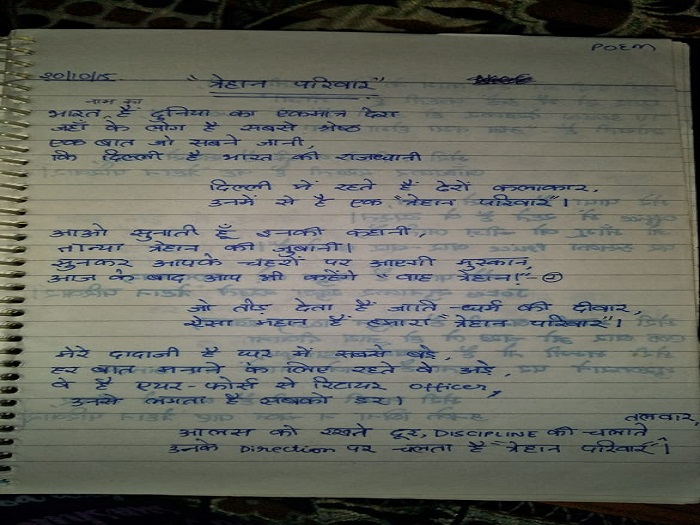 POEM
20/10/15
"त्रेहान परिवार"
नाम का
भारत है दुनिया का एकमात्र देश
जहाँ के लोग है सबसे श्रेष्ठ
एक बात जो सबने जानी,
कि दिल्ली है भारत की राजधानी
दिल्ली में रहते हैं ढेरों कलाकार,
उनमें से है एक "त्रेहान परिवार"।
आओ सुनाती हूँ इनकी कहानी,
तान्या त्रेहान की जुबानी।
सुनकर आपके चेहरों पर आएगी मुस्कान,
आज के बाद आप भी कहेंगे "वाह त्रेहान!"-②
जो तोड़ देता है जाति-धर्म की दीवार,
ऐसा महान है हमारा "त्रेहान परिवार"।
मेरे दादाजी है घर में सबसे बड़े,
हर बात मनाने के लिए रहते वे अड़े,
वे है एयर-फोर्स से रिटायर officer,
उनसे लगता है सबको डर।
तलवार,
आलस को रखते दूर, DISCIPLINE की चलाते
उनके Direction पर चलता है "त्रेहान परिवार"।